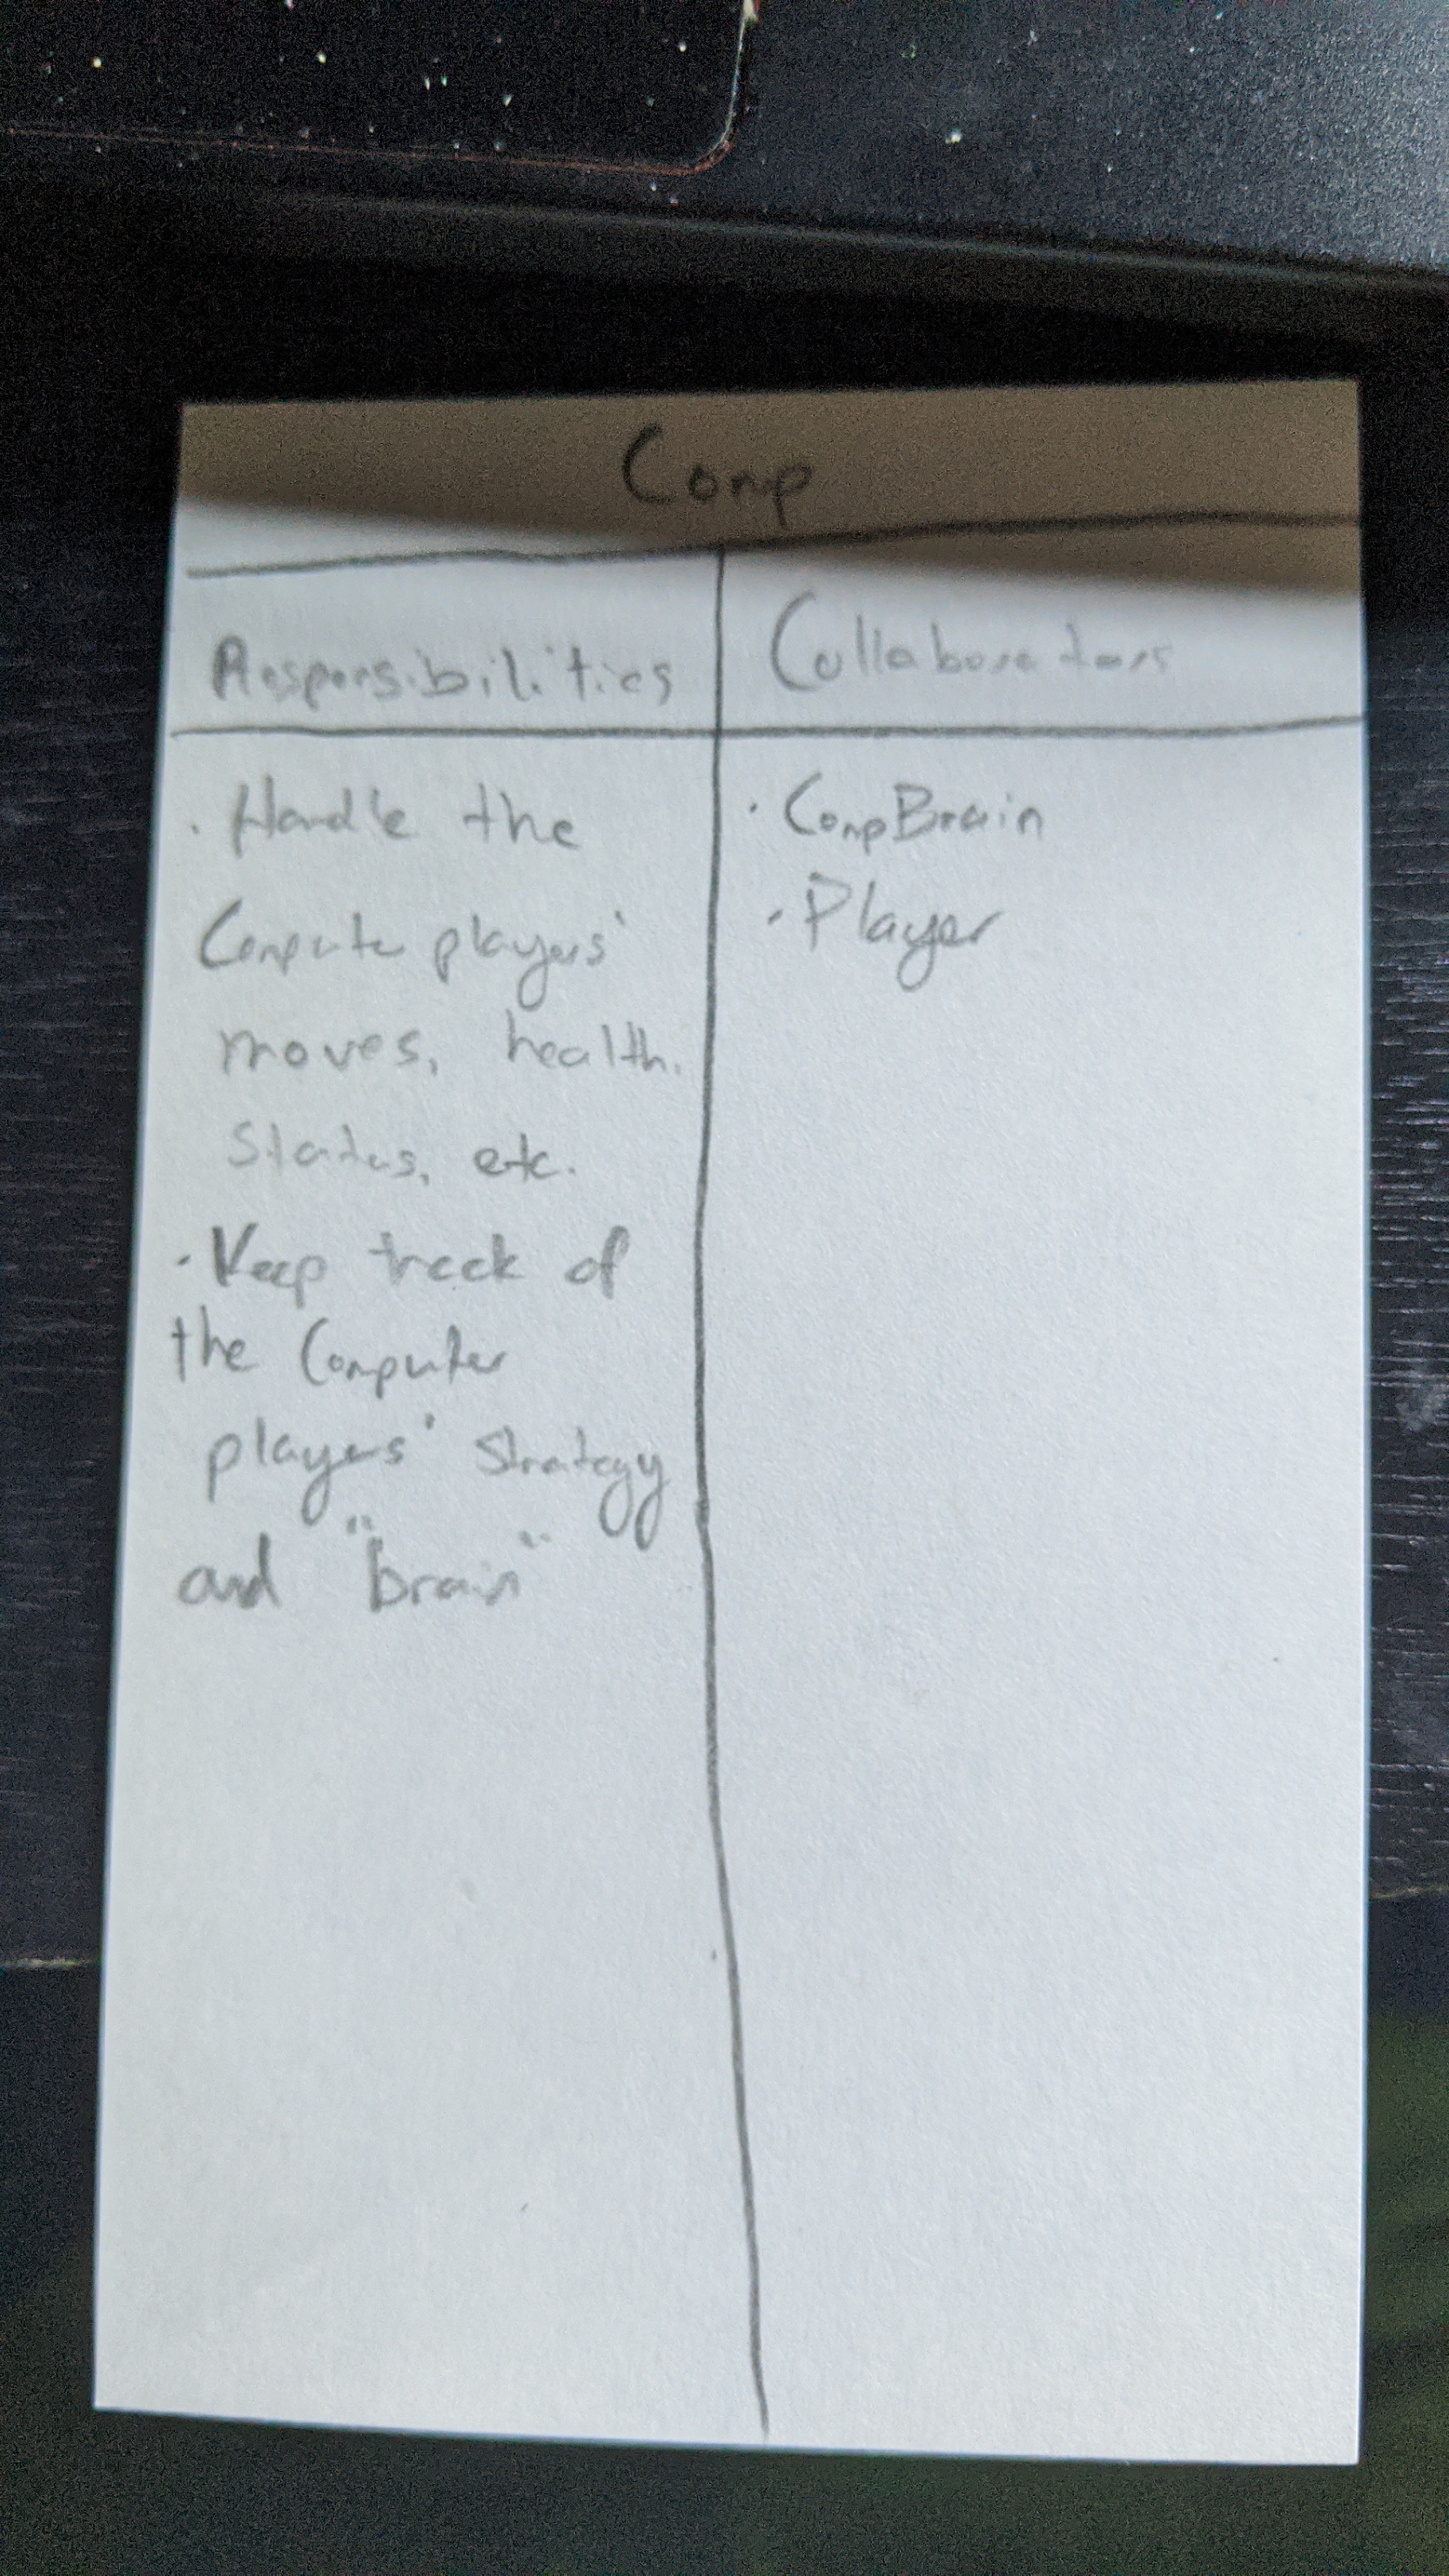 Comp
Responsibilities
Collaborators
· Handle the
Computer players'
moves, health,
Status, etc.
· Keep track of
the Computer
players' Strategy
and "brain"
· CompBrain
· Player